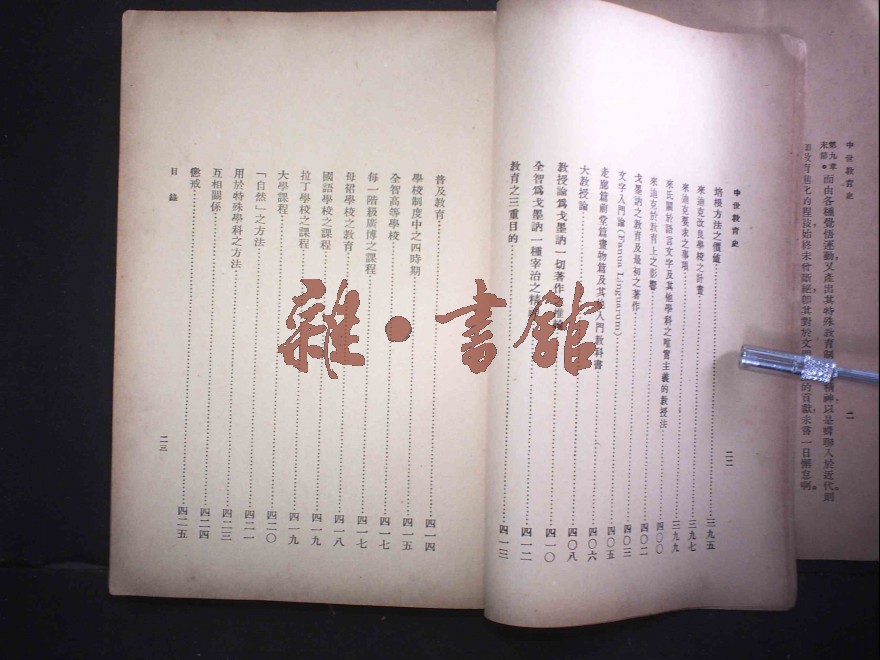 中世教育史
二
第九章
末節。
而由各種覺悟運動又產出其特殊教育
精神以是嬗聯入於近代。則
程度始終未曾斷絕。卽其對於文
的貢獻未嘗一日懈怠啊。
中世教育史
二二
培根方法之價值 三九五
來迪克改良學校之計畫 三九七
來迪克要求之事項 三九九
來氏關於語言文字及其他學科之唯實主義的教授法 四〇〇
來迪克於教育上之影響 四〇二
戈墨訥之教育及最初之著作 四〇三
文字入門論(Janua Linguarum) 四〇五
走廊篇前堂篇畫物篇及其他入門教科書 四〇六
大教授論 四〇八
教授論爲戈墨訥一切著作 四一〇
全智爲戈墨訥一種宰治之精 四一二
教育之三重目的 四一三
普及教育 四一四
學校制度中之四時期 四一五
全智高等學校 四一七
每一階級廣博之課程 四一七
母裙學校之教育 四一八
國語學校之課程 四一九
拉丁學校之課程 四一九
大學課程 四二〇
「自然」之方法 四二一
用於特殊學科之方法 四二三
互相關係 四二四
懲戒 四二五
目錄
二三
雜·書館